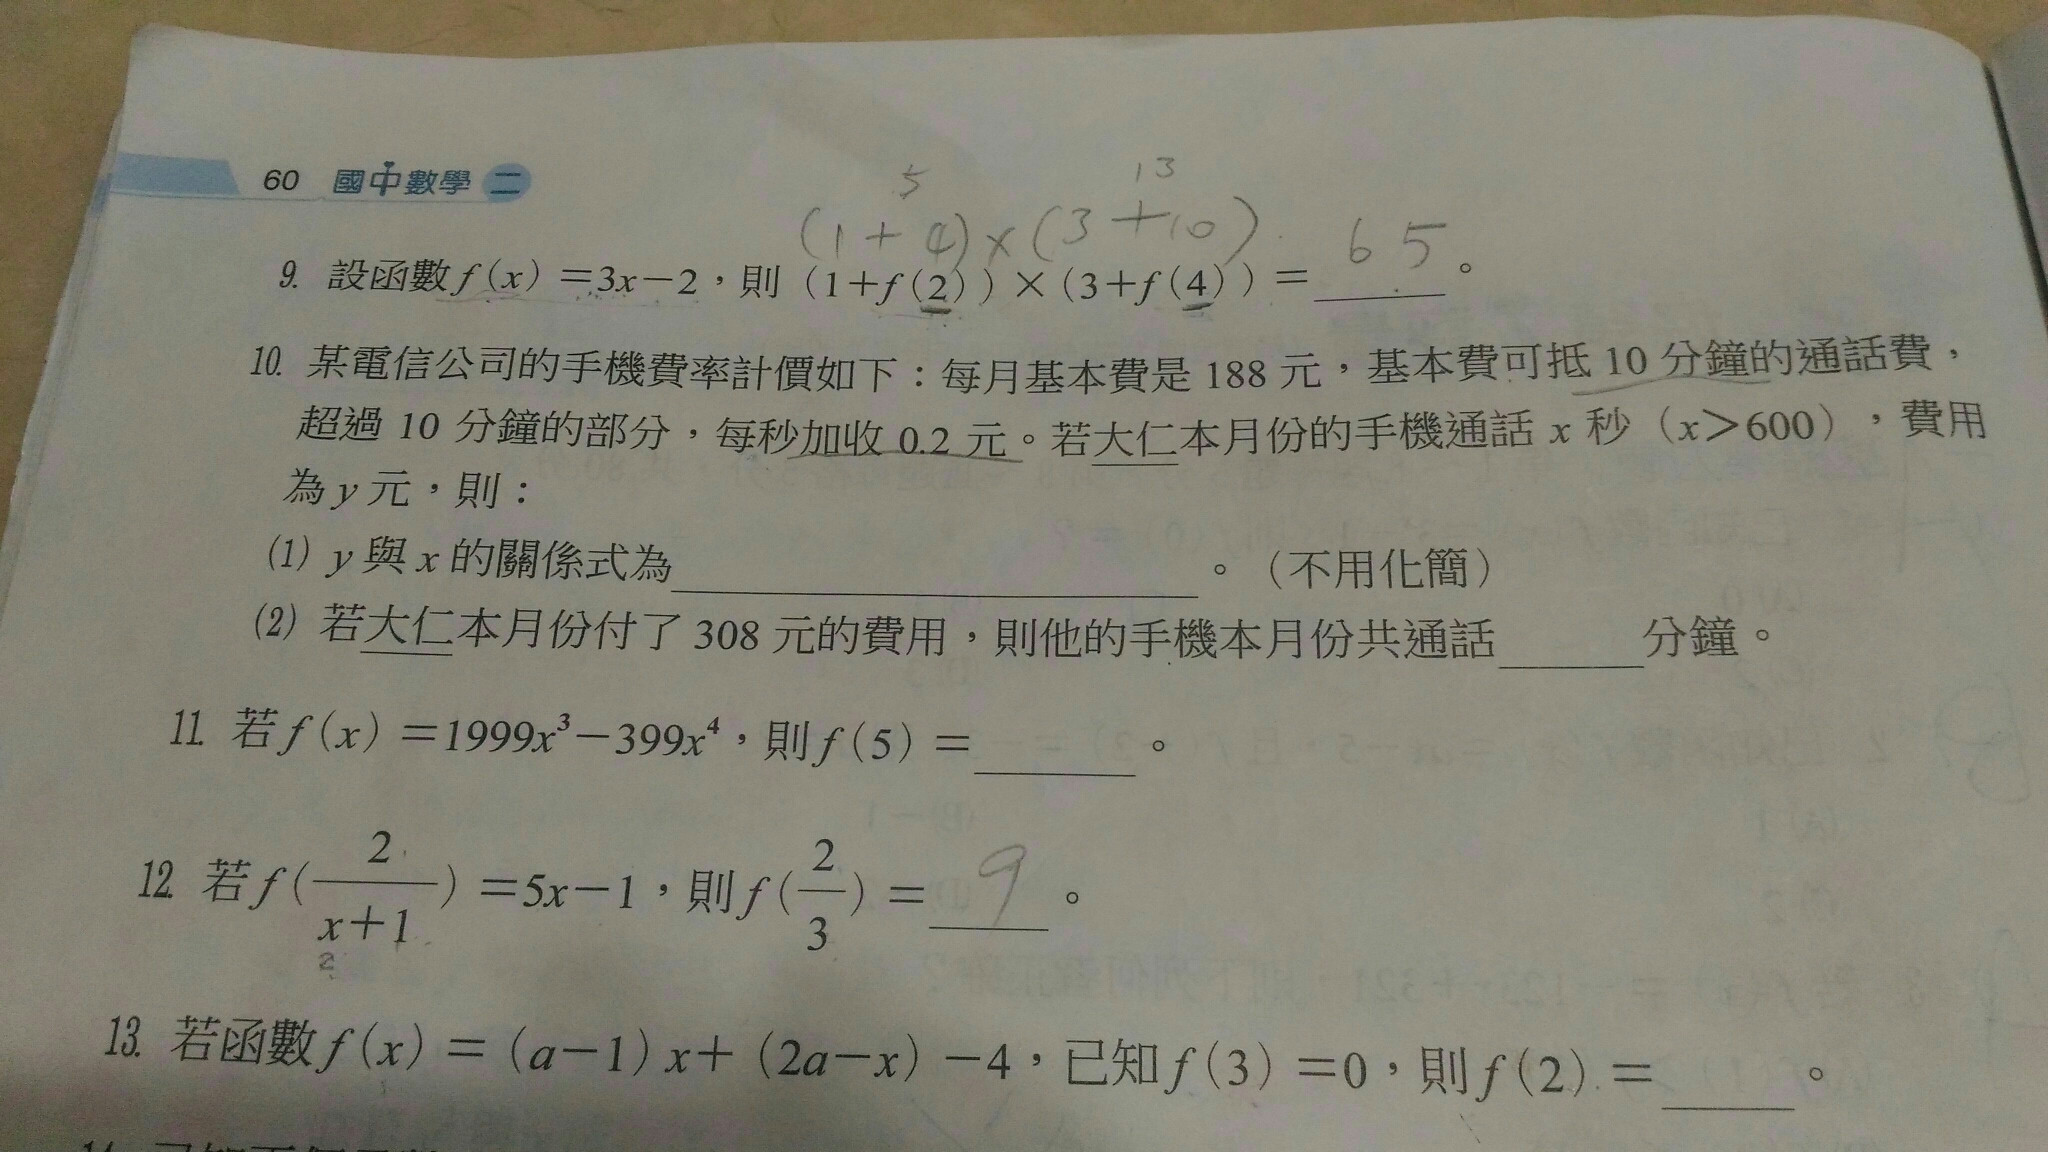 60 國中數學 二
5 13
(1+4)×(3+10) 65
9. 設函數f(x)=3x-2,則(1+f(2))×(3+f(4))=______。
10. 某電信公司的手機費率計價如下:每月基本費是188元,基本費可抵10分鐘的通話費,
超過10分鐘的部分,每秒加收0.2元。若大仁本月份的手機通話x秒(x>600),費用
為y元,則:
(1) y與x的關係式為______。(不用化簡)
(2) 若大仁本月份付了308元的費用,則他的手機本月份共通話______分鐘。
11. 若f(x)=1999x³-399x⁴,則f(5)=______。
12. 若f(2/(x+1))=5x-1,則f(2/3)=9。
2
13. 若函數f(x)=(a-1)x+(2a-x)-4,已知f(3)=0,則f(2)=______。